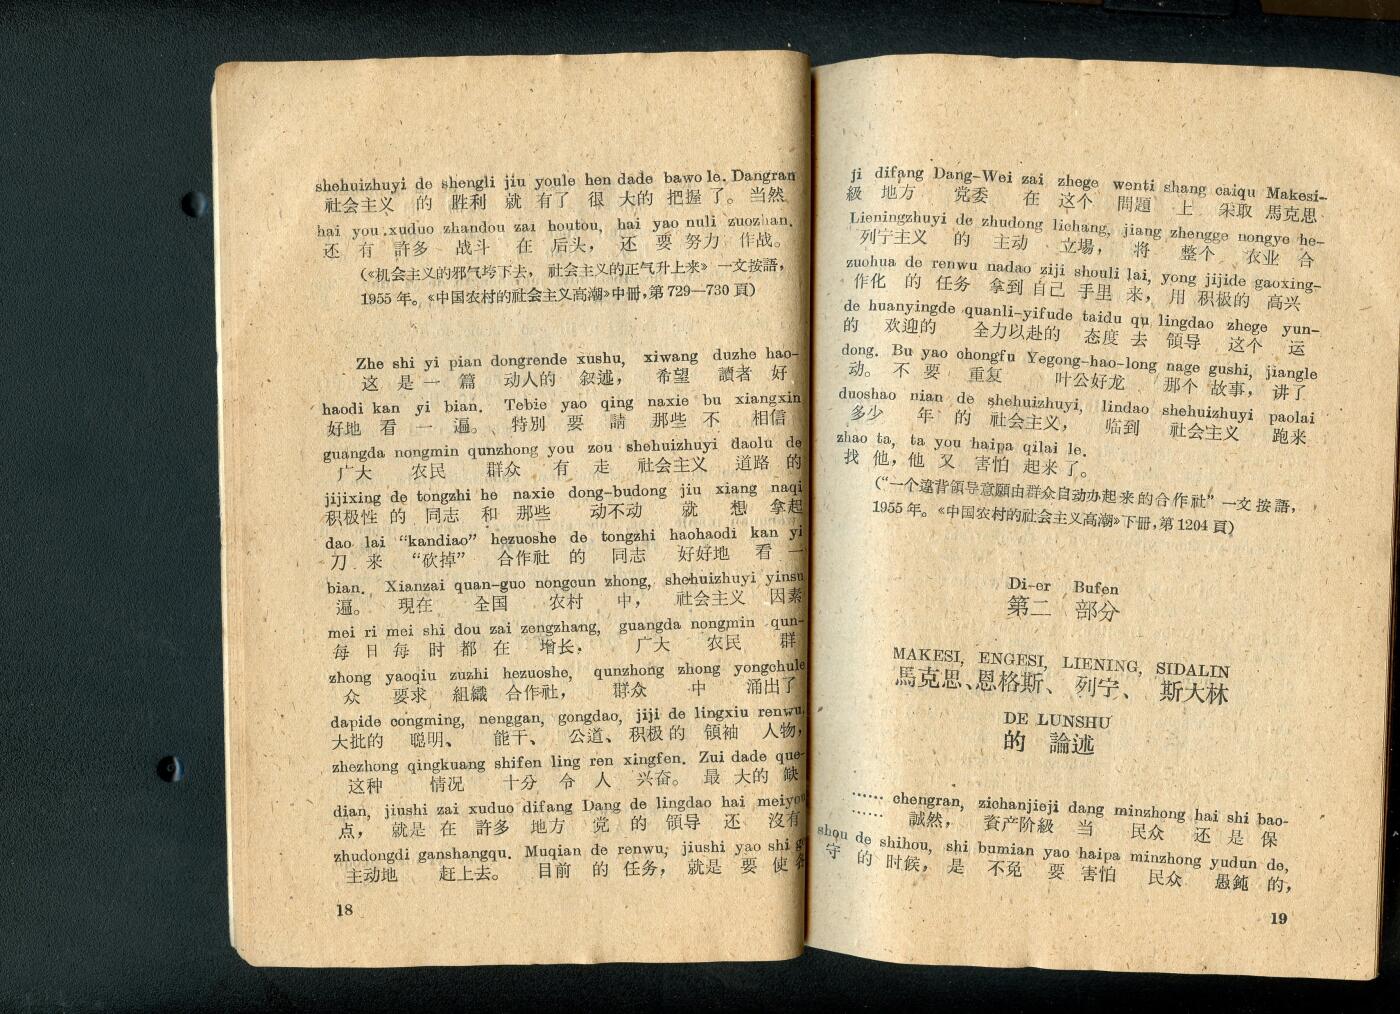 shehuizhuyi de shengli jiu youle hen dade bawo le. Dangran
社会主义 的 胜利 就 有了 很 大的 把握 了。当然
hai you xuduo zhandou zai houtou, hai yao nuli zuozhan.
还 有 許多 战斗 在 后头， 还 要 努力 作战。
(《机会主义的邪气垮下去，社会主义的正气升上来》一文按語，
1955 年。《中国农村的社会主义高潮》中冊，第 729—730 頁)
Zhe shi yi pian dongrende xushu, xiwang duzhe hao-
这 是 一 篇 动人的 叙述， 希望 讀者 好
haodi kan yi bian. Tebie yao qing naxie bu xiangxin
好地 看 一 遍。 特別 要 請 那些 不 相信
guangda nongmin qunzhong you zou shehuizhuyi daolu de
广大 农民 群众 有 走 社会主义 道路 的
jijixing de tongzhi he naxie dong-budong jiu xiang naqi
积极性 的 同志 和 那些 动不动 就 想 拿起
dao lai “kandiao” hezuoshe de tongzhi haohaodi kan yi
刀 来 “砍掉” 合作社 的 同志 好好地 看 一
bian. Xianzai quan-guo nongcun zhong, shehuizhuyi yinsu
遍。 現在 全国 农村 中， 社会主义 因素
mei ri mei shi dou zai zengzhang, guangda nongmin qun-
每 日 每 时 都 在 增长， 广大 农民 群
zhong yaoqiu zuzhi hezuoshe, qunzhong zhong yongchule
众 要求 組織 合作社， 群众 中 涌出了
dapide congming, nenggan, gongdao, jiji de lingxiu renwu,
大批的 聪明、 能干、 公道、 积极的 領袖 人物，
zhezhong qingkuang shifen ling ren xingfen. Zui dade que-
这种 情况 十分 令 人 兴奋。 最 大的 缺
dian, jiushi zai xuduo difang Dang de lingdao hai meiyou
点， 就是 在 許多 地方 党 的 領导 还 沒有
zhudongdi ganshangqu. Muqian de renwu, jiushi yao shi g
主动地 赶上去。 目前 的 任务， 就是 要 使 各
18
ji difang Dang-Wei zai zhege wenti shang caiqu Makesi-
級 地方 党委 在 这个 問題 上 采取 馬克思
Lieningzhuyi de zhudong lichang, jiang zhengge nongye he-
列宁主义 的 主动 立場， 将 整个 农业 合
zuohua de renwu nadao ziji shouli lai, yong jijide gaoxing-
作化 的 任务 拿到 自己 手里 来，用 积极的 高兴
de huanyingde quanli-yifude taidu qu lingdao zhege yun-
的 欢迎的 全力以赴的 态度 去 領导 这个 运
dong. Bu yao chongfu Yegong-hao-long nage gushi, jiangle
动。 不 要 重复 叶公好龙 那个 故事，讲了
duoshao nian de shehuizhuyi, lindao shehuizhuyi paolai
多少 年 的 社会主义， 临到 社会主义 跑来
zhao ta, ta you haipa qilai le.
找 他，他 又 害怕 起来 了。
(“一个違背領导意願由群众自动办起来的合作社” 一文按語，
1955 年。《中国农村的社会主义高潮》下冊，第 1204 頁)
Di-er Bufen
第二 部分
MAKESI, ENGESI, LIENING, SIDALIN
馬克思、恩格斯、 列宁、 斯大林
DE LUNSHU
的 論述
…… chengran, zichanjieji dang minzhong hai shi bao-
…… 誠然， 資产阶級 当 民众 还 是 保
shou de shihou, shi bumian yao haipa minzhong yudun de,
守 的 时候， 是 不免 要 害怕 民众 愚鈍 的，
19